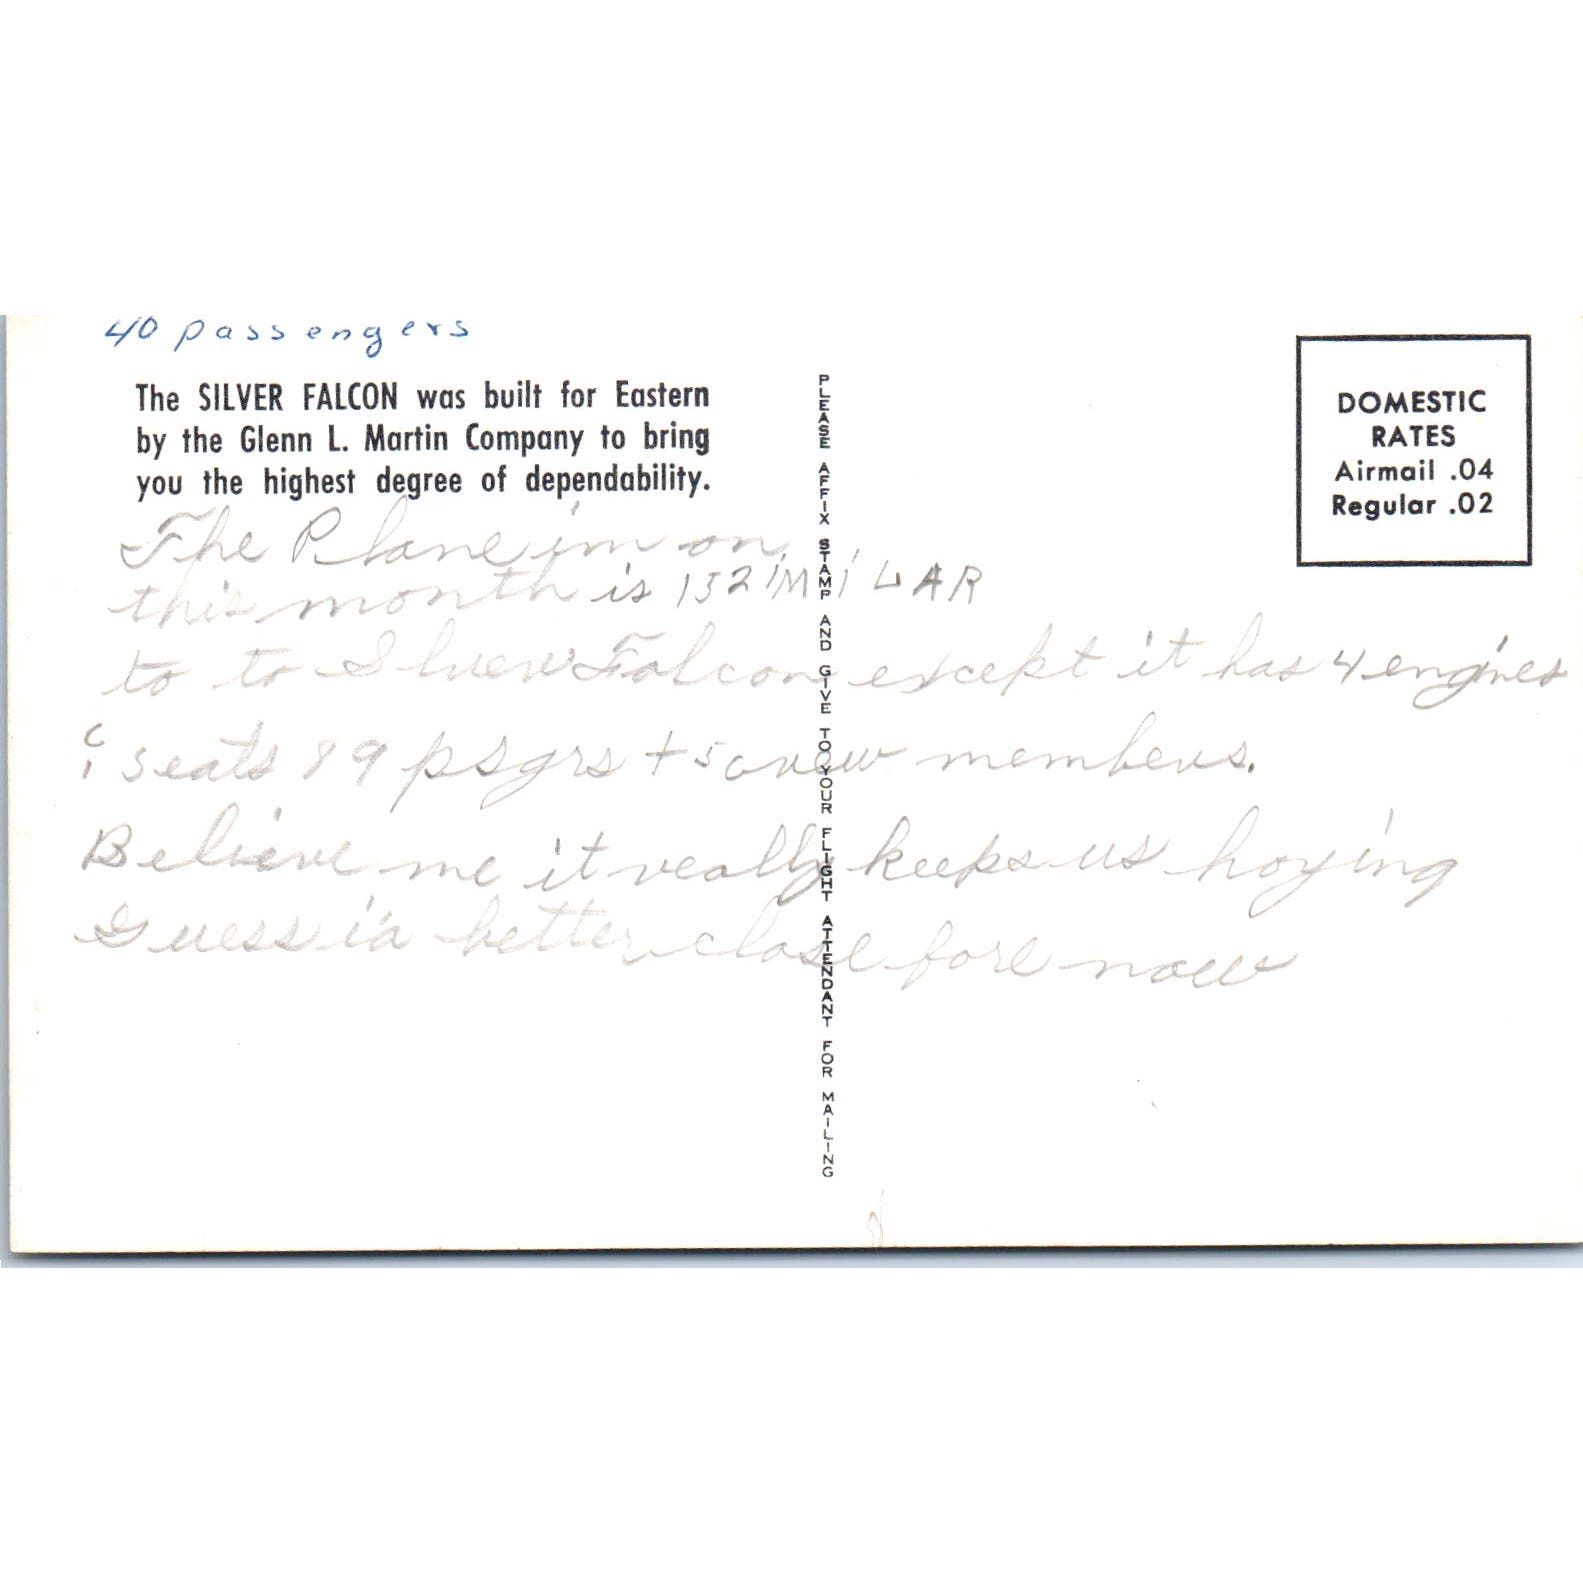 40 passengers
The SILVER FALCON was built for Eastern
by the Glenn L. Martin Company to bring
you the highest degree of dependability.
The Plane im on
this month is 152 iMiLAR
to to Silver Falcon except it has 4 engines
& seats 89 psgrs + 5 crew members.
Believe me it really keeps us hoying
Guess i'd better close fore now
PLEASE AFFIX STAMP AND GIVE TO YOUR FLIGHT ATTENDANT FOR MAILING
DOMESTIC
RATES
Airmail .04
Regular .02